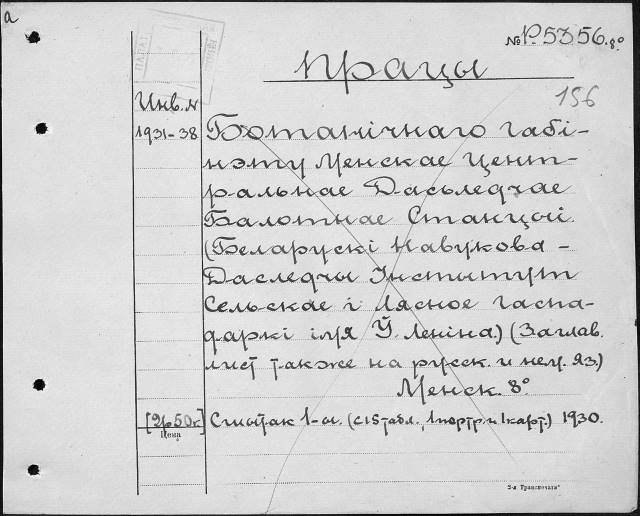 а
№ P.5356.8°
Працы
156
Инв. №
1931-38
Ботанічнаго габі-
нэту Менскае Цент-
ральнае Дасьледчае
Балотнае Станцыі.
(Беларускі Навукова-
Даследчы Інстытут
Сельскае і Лясное гаспа-
даркі імя Ў. Леніна.) (Заглав.
лист также на русск. и нем. яз.)
Менск. 8°
[2р50к] Сшытак 1-ы. (с 15 табл., 1 портр. и 1 карт.) 1930.
Цена
2-я Транспечать